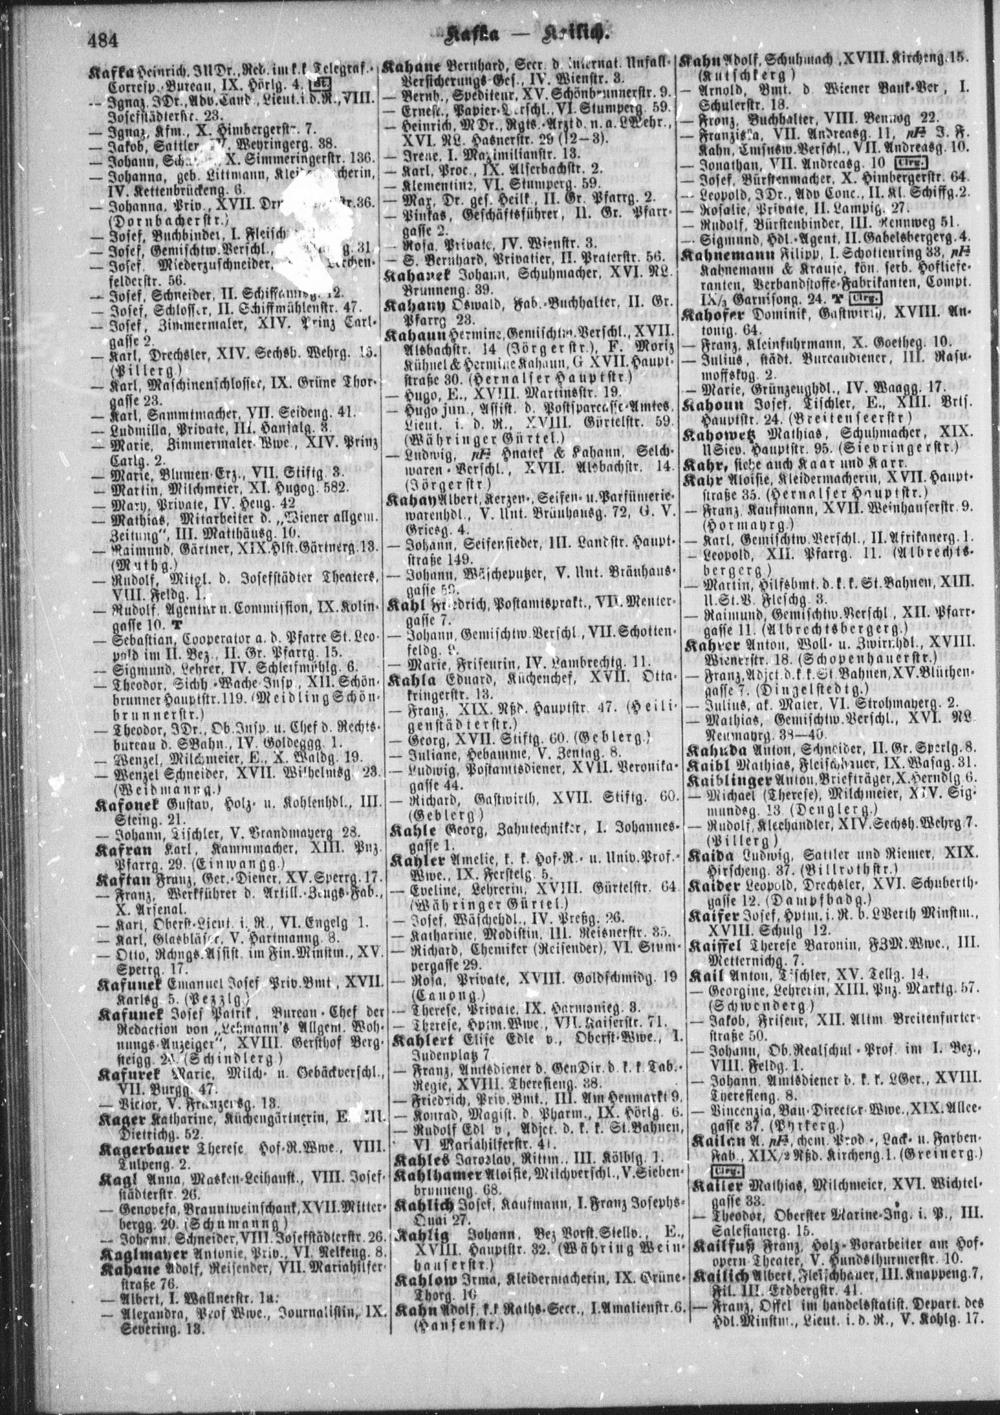 484
Kafka — Kailich.
Kafka Heinrich, JUDr., Red. im k.k. Telegraf.-
Corresp.-Bureau, IX. Hörlg. 4.
— Ignaz, JDr., Adv. Cand., Lieut. i. d. R., VIII.
Josefstädterstr. 23.
— Ignaz, Kfm., X. Himbergerstr. 7.
— Jakob, Sattler, Weyringerg. 38.
— Johann, X. Simmeringerstr. 136.
— Johanna, geb. Littmann,
IV. Kettenbrückeng. 6.
— Johanna, Priv., XVII. 36.
(Dornbacherstr.)
— Josef, Buchbinder, I.
— Josef, Gemischtw. Verschl., g. 31
— Josef, Miederzuschneider,
felderstr. 56.
— Josef, Schneider, II. Schiffamtsg. 12.
— Josef, Schlosser, II. Schiffmühlenstr. 47.
— Josef, Zimmermaler, XIV. Prinz Carl-
gasse 2.
— Karl, Drechsler, XIV. Sechsh. Wehrg. 15.
(Pillerg.)
— Karl, Maschinenschlosser, IX. Grüne Thor-
gasse 23.
— Karl, Sammtmacher, VII. Seideng. 41.
— Ludmilla, Private, III. Hansalg. 3.
— Marie, Zimmermaler-Wwe., XIV. Prinz
Carlg. 2.
— Marie, Blumen-Erz., VII. Stiftg. 3.
— Martin, Milchmeier, XI. Hugog. 582.
— Mary, Private, IV. Heug. 42
— Mathias, Mitarbeiter d. „Wiener allgem.
Zeitung“, III. Matthäusg. 10.
— Raimund, Gärtner, XIX. Hlst. Gärtnerg. 13.
(Muthg.)
— Rudolf, Mitgl. d. Josefstädter Theaters,
VIII. Feldg. 1.
— Rudolf, Agentur u. Commission, IX. Kolin-
gasse 10. T
— Sebastian, Cooperator a. d. Pfarre St. Leo-
pold im II. Bez., II. Gr. Pfarrg. 15.
— Sigmund, Lehrer, IV. Schleifmühlg. 6.
— Theodor, Sichh.-Wache-Insp., XII. Schön-
brunner Hauptstr. 119. (Meidling Schön-
brunnerstr.)
— Theodor, JDr., Ob. Insp. u. Chef d. Rechts-
bureau d. SBahn., IV. Goldeggg. 1.
— Wenzel, Milchmeier, E., X. Waldg. 19.
— Wenzel Schneider, XVII. Wilhelmsg. 23.
(Weidmanng.)
Kafonek Gustav, Holz- u. Kohlenhdl., III.
Steing. 21.
— Johann, Tischler, V. Brandmayerg 28.
Kafran Karl, Kammmacher, XIII. Pnz.
Pfarrg. 29. (Einwangg.)
Kaftan Franz, Ger.-Diener, XV. Sperrg. 17.
— Franz, Werkführer d. Artill.-Zeugs-Fab.,
X. Arsenal.
— Karl, Oberst-Lieut. i. R., VI. Engelg 1.
— Karl, Glasbläser, V. Hartmanng. 8.
— Otto, Rchngs. Assist. im Fin. Minstm., XV.
Sperrg. 17.
Kafunek Emanuel Josef Priv. Bmt, XVII.
Karlsg. 5. (Pezzlg.)
Kafunek Josef Patrik, Bureau-Chef der
Redaction von „Lehmann's Allgem. Woh-
nungs-Anzeiger“, XVIII. Gersthof Berg-
steigg. (Schindlerg.)
Kafurek Marie, Milch- u. Gebäckverschl.,
VII. Burgg. 47.
— Victor, V. Franzensg. 13.
Kager Katharine, Küchengärtnerin, E.
Dietrichg. 52.
Kagerbauer Therese Hof-R. Wwe., VIII.
Tulpeng. 2.
Kagl Anna, Masken-Leihanst., VIII. Josef-
städterstr. 26.
— Genovefa, Branntweinschank, XVII. Mitter-
bergg. 20. (Schumanng)
— Johann, Schneider, VIII. Josefstädterstr. 26.
Kaglmayer Antonie, Priv., VI. Relkeng. 8.
Kahane Adolf, Reisender, VII. Mariahilfer-
straße 76.
— Albert, I. Wallnerstr. 1a.
— Alexandra, Prof Wwe., Journalistin, IX.
Severing. 13.
Kahane Bernhard, Secr. d. Internat. Unfall-
Versicherungs-Ges., IV. Wienstr. 3.
— Bernh., Spediteur, XV. Schönbrunnerstr. 9.
— Ernest., Papier-Verschl., VI. Stumperg. 59.
— Heinrich, MDr., Rgts.-Arzt d. n. a. LWehr.,
XVI. NL. Hasnerstr. 29 (12—3).
— Irene, I. Maximilianstr. 13.
— Karl, Proc., IX. Alserbachstr. 2.
— Klementine, VI. Stumperg. 59.
— Max, Dr. ges. Heilk., II. Gr. Pfarrg. 2.
— Pinkas, Geschäftsführer, II. Gr. Pfarr-
gasse 2.
— Rosa, Private, IV. Wienstr. 3.
— S. Bernhard, Privatier, II. Praterstr. 56.
Kahanek Johann, Schuhmacher, XVI. NL.
Brunneng. 39.
Kahany Oswald, Fab.-Buchhalter, II. Gr.
Pfarrg 23.
Kahaun Hermine, Gemischtw. Verschl., XVII.
Alsbachstr. 14 (Jörgerstr.), F. Moriz
Kühnel & Hermine Kahaun, G XVII. Haupt-
straße 30. (Hernalser Hauptstr.)
— Hugo, E., XVIII. Martinsstr. 19.
— Hugo jun., Assist. d. Postsparcasse-Amtes,
Lieut. i. d. R., XVIII. Gürtelstr. 59.
(Währinger Gürtel.)
— Ludwig, Hnatek & Kahann, Selch-
waren-Verschl., XVII. Alsbachstr. 14.
(Jörgerstr.)
Kahay Albert, Kerzen-, Seifen- u. Parfümerie-
warenhdl., V. Unt. Bräuhausg. 72, G. V.
Griesg. 4.
— Johann, Seifensieder, III. Landstr. Haupt-
straße 149.
— Johann, Wäscheputzer, V. Unt. Bräuhaus-
gasse 59.
Kahl Friedrich, Postamtsprakt., VII. Menter-
gasse 7.
— Johann, Gemischtw. Verschl., VII. Schotten-
feldg.
— Marie, Friseurin, IV. Lambrechtg. 11.
Kahla Eduard, Küchenchef, XVII. Otta-
kringerstr. 13.
— Franz, XIX. Nßd. Hauptstr. 47. (Heili-
genstädterstr.)
— Georg, XVII. Stiftg. 60. (Geblerg.)
— Juliane, Hebamme, V. Zentag. 8.
— Ludwig, Postamtsdiener, XVII. Veronika-
gasse 44.
— Richard, Gastwirth, XVII. Stiftg. 60.
(Geblerg)
Kahle Georg, Zahntechniker, I. Johannes-
gasse 1.
Kahler Amelie, k. k. Hof-R.- u. Univ. Prof.-
Wwe., IX. Ferstelg. 5.
— Eveline, Lehrerin, XVIII. Gürtelstr. 64.
(Währinger Gürtel.)
— Josef, Wäschehdl., IV. Preßg. 26.
— Katharine, Modistin, III. Reisnerstr. 35.
— Richard, Chemiker (Reisender), VI. Stum-
pergasse 29.
— Rosa, Private, XVIII. Goldschmidg. 19
(Canong.)
— Therese, Private, IX. Harmonieg. 3.
— Therese, Hptm. Wwe., VII. Kaiserstr. 71.
Kahlert Elise Edle v., Oberst-Wwe., I.
Judenplatz 7
— Franz, Amtsdiener d. Gen Dir. d. k. k. Tab.-
Regie, XVIII. Theresieng. 38.
— Friedrich, Priv. Bmt., III. Am Heumarkt 9.
— Konrad, Magist. d. Pharm., IX. Hörlg. 6.
— Rudolf Edl v, Adjct. d. k. k. St. Bahnen,
VI. Mariahilferstr. 41.
Kahles Jaroslav, Rittm., III. Kölblg. 1.
Kahlhamer Aloisie, Milchverschl., V. Sieben-
brunneng. 68.
Kahlich Josef, Kaufmann, I. Franz Josephs-
Quai 27.
Kahlig Johann, Bez Vorst. Stellv., E.,
XVIII. Hauptstr. 32. (Währing Wein-
hauserstr.)
Kahlow Irma, Kleidermacherin, IX. Grüne-
Thorg. 16
Kahn Adolf, k. k. Raths-Secr., I. Amalienstr. 6.
(Hansenstr.)
Kahn Adolf, Schuhmach., XVIII. Kircheng. 15.
(Kutschkerg)
— Arnold, Bmt. d. Wiener Bank-Ver, I.
Schulerstr. 18.
— Franz, Buchhalter, VIII. Bennog 22.
— Franziska, VII. Andreasg. 11, J. F.
Kahn, Cmfnsw. Verschl., VII. Andreasg. 10.
— Jonathan, VII. Andreasg. 10 Clrg.
— Josef, Bürstenmacher, X. Himbergerstr. 64
— Leopold, JDr., Adv Conc., II. Kl. Schiffg. 2.
— Rosalie, Private, II. Lampig. 27.
— Rudolf, Bürstenbinder, III. Rennweg 51.
— Sigmund, Hdl.-Agent, II. Gabelsbergerg. 4.
Kahnemann Filipp, I. Schottenring 33,
Kahnemann & Krause, kön. serb. Hofliefe-
ranten, Verbandstoffe-Fabrikanten, Compt.
IX/3 Garnisong. 24. T Clrg.
Kahofer Dominik, Gastwirth, XVIII. An-
tonig. 64.
— Franz, Kleinfuhrmann, X. Goetheg. 10.
— Julius, städt. Bureaudiener, III. Rasu-
moffskyg. 2.
— Marie, Grünzeughdl., IV. Waagg. 17.
Kahoun Josef, Tischler, E., XIII. Brts.
Hauptstr. 24. (Breitenseerstr)
Kahowetz Mathias, Schuhmacher, XIX.
USiev. Hauptstr. 95. (Sieveringerstr.)
Kahr, siehe auch Kaar und Karr.
Kahr Aloisie, Kleidermacherin, XVII. Haupt-
straße 35. (Hernalser Hauptstr.)
— Franz, Kaufmann, XVII. Weinhauserstr. 9.
(Hormayrg.)
— Karl, Gemischtw. Verschl., II. Afrikanerg. 1.
— Leopold, XII. Pfarrg. 11. (Albrechts-
bergerg.)
— Martin, Hilfsbmt. d. k. k. St. Bahnen, XIII.
U. St. V. Fleschg. 3.
— Raimund, Gemischtw. Verschl, XII. Pfarr-
gasse 11. (Albrechtsbergerg.)
Kahrer Anton, Woll- u. Zwirnhdl., XVIII.
Wienerstr. 18. (Schopenhauerstr.)
— Franz, Adjct. d. k. k. St. Bahnen, XV. Blüthen-
gasse 7. (Dingelstedtg.)
— Julius, ak. Maler, VI. Strohmayerg. 2.
— Mathias, Gemischtw. Verschl., XVI. NL
Neumayrg. 38—40.
Kahuda Anton, Schneider, II. Gr. Sperlg. 8.
Kaibl Mathias, Fleischhauer, IX. Wasag. 31.
Kaiblinger Anton, Briefträger, X. Herndlg 6.
— Michael (Therese), Milchmeier, XIV. Sig-
mundsg. 13 (Denglerg.)
— Rudolf, Kleehändler, XIV. Sechsh. Wehrg 7.
(Pillerg)
Kaida Ludwig, Sattler und Riemer, XIX.
Hirscheng. 37. (Billrothstr.)
Kaider Leopold, Drechsler, XVI. Schuberth-
gasse 12. (Dampfbadg.)
Kaifer Josef, Hptm. i. R. b. LVerth Minstm.,
XVIII. Schulg 12.
Kaiffel Therese Baronin, FZM. Wwe., III.
Metternichg. 7.
Kail Anton, Tischler, XV. Tellg. 14.
— Georgine, Lehrerin, XIII. Pnz. Marktg. 57.
(Schwenderg)
— Jakob, Friseur, XII. Altm. Breitenfurter-
straße 50.
— Johann, Ob. Realschul-Prof. im I. Bez.,
VIII. Feldg. 1.
— Johann, Amtsdiener b. k. k. LGer., XVIII.
Theresieng. 8.
— Vincenzia, Bau-Director-Wwe., XIX. Allee-
gasse 37. (Pyrkerg.)
Kailan A. chem. Prod-, Lack- u. Farben-
Fab., XIX/2 Nßd. Kircheng. 1. (Greinerg.)
Clrg.
Kailer Mathias, Milchmeier, XVI. Wichtel-
gasse 33.
— Theodor, Oberster Marine-Ing. i. P., III.
Salesianerg. 15.
Kailfuß Franz, Holz-Vorarbeiter am Hof-
opern-Theater, V. Hundsthurmerstr. 10.
Kailich Albert, Fleischhauer, III. Knappeng. 7,
Fil. III. Erdbergstr. 41.
— Franz, Offcl im handelsstatist. Depart. des
Hdl. Minstm., Lieut. i. d. R., V. Kohlg. 17.